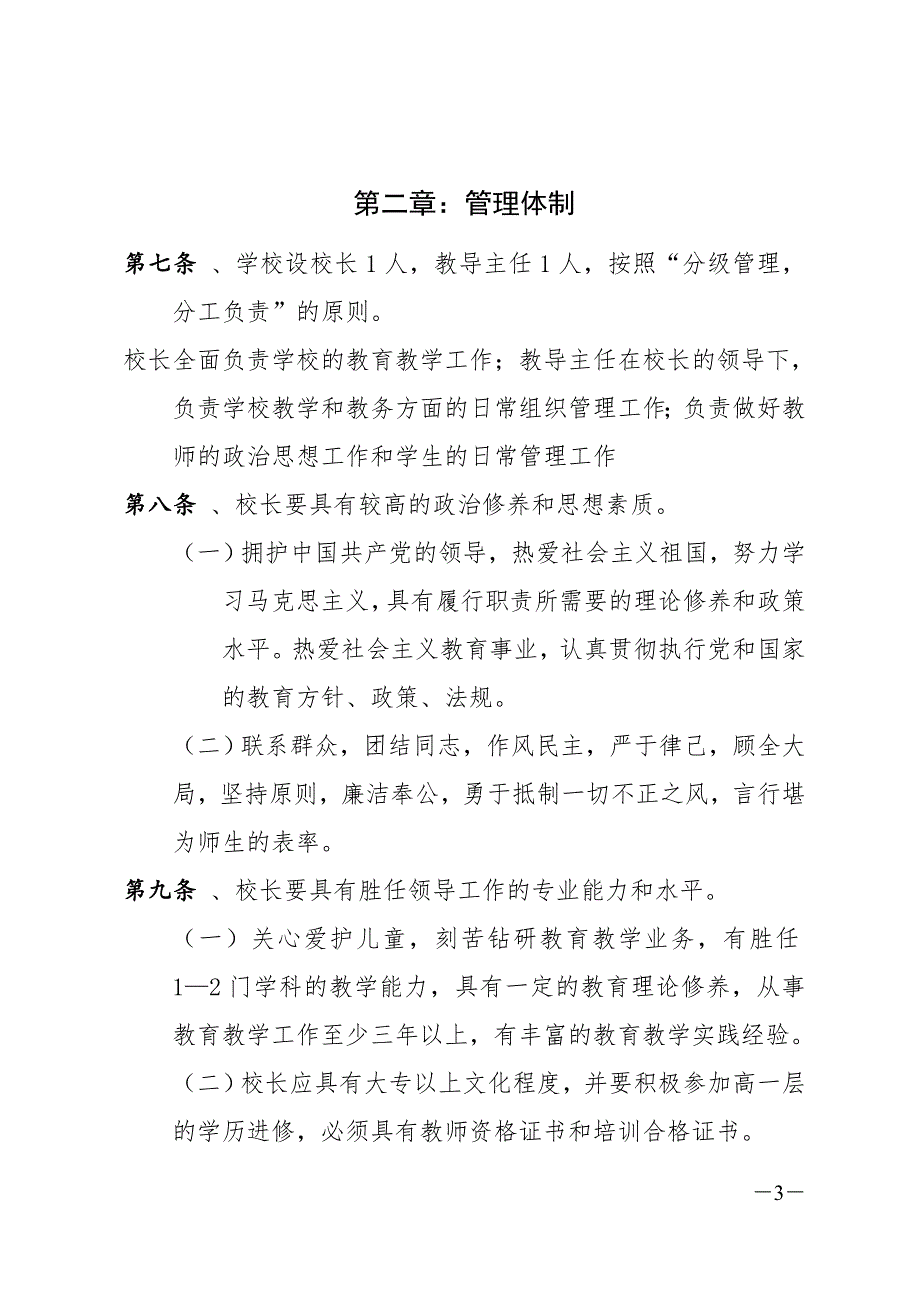 第二章：管理体制
第七条 、学校设校长1人，教导主任1人，按照“分级管理，
分工负责”的原则。
校长全面负责学校的教育教学工作；教导主任在校长的领导下，
负责学校教学和教务方面的日常组织管理工作；负责做好教
师的政治思想工作和学生的日常管理工作
第八条 、校长要具有较高的政治修养和思想素质。
（一）拥护中国共产党的领导，热爱社会主义祖国，努力学
习马克思主义，具有履行职责所需要的理论修养和政策
水平。热爱社会主义教育事业，认真贯彻执行党和国家
的教育方针、政策、法规。
（二）联系群众，团结同志，作风民主，严于律己，顾全大
局，坚持原则，廉洁奉公，勇于抵制一切不正之风，言行堪
为师生的表率。
第九条 、校长要具有胜任领导工作的专业能力和水平。
（一）关心爱护儿童，刻苦钻研教育教学业务，有胜任
1—2门学科的教学能力，具有一定的教育理论修养，从事
教育教学工作至少三年以上，有丰富的教育教学实践经验。
（二）校长应具有大专以上文化程度，并要积极参加高一层
的学历进修，必须具有教师资格证书和培训合格证书。
－3－